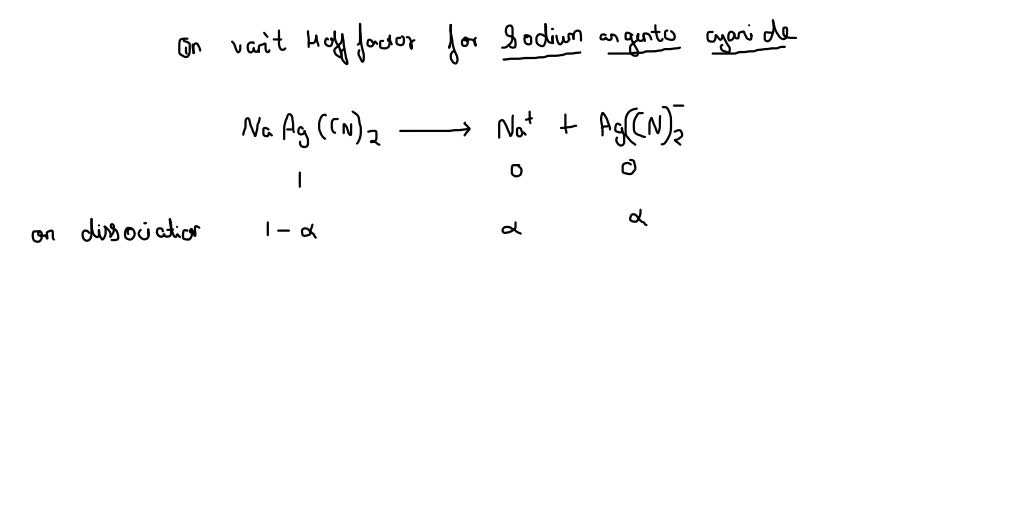 On van't Hoff factor for Sodium argento cyanide
Na Ag (CN)₂ ⟶ Na⁺ + Ag(CN)₂⁻
1 0 0
on dissociation 1 - α α α